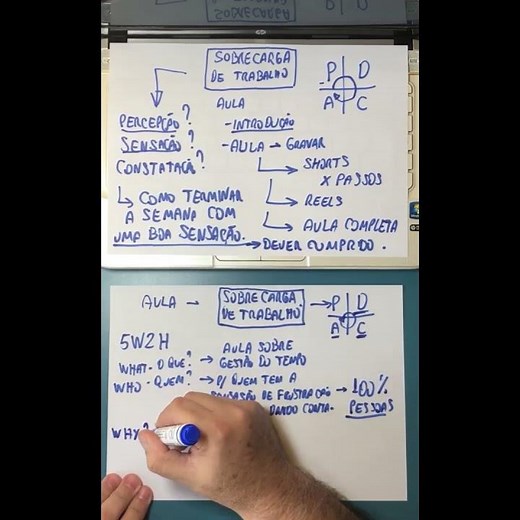 SOBRECARGA
DE TRABALHO
P D
A C
PERCEPÇÃO?
SENSAÇÃO?
CONSTATAÇÃ?
↳ COMO TERMINAR
A SEMANA COM
UMA BOA SENSAÇÃO. → DEVER CUMPRIDO.
AULA
- INTRODUÇÃO
- AULA → GRAVAR
↳ SHORTS
X PASSOS
↳ REELS
↳ AULA COMPLETA
AULA → SOBRECARGA → P D
DE TRABALHO. A C
5W2H
WHAT - O QUE? → AULA SOBRE
GESTÃO DO TEMPO
WHO - QUEM? → P/ QUEM TEM A
DE FRUSTRAÇÃO → 100%
DANDO CONTA. PESSOAS
WHY?